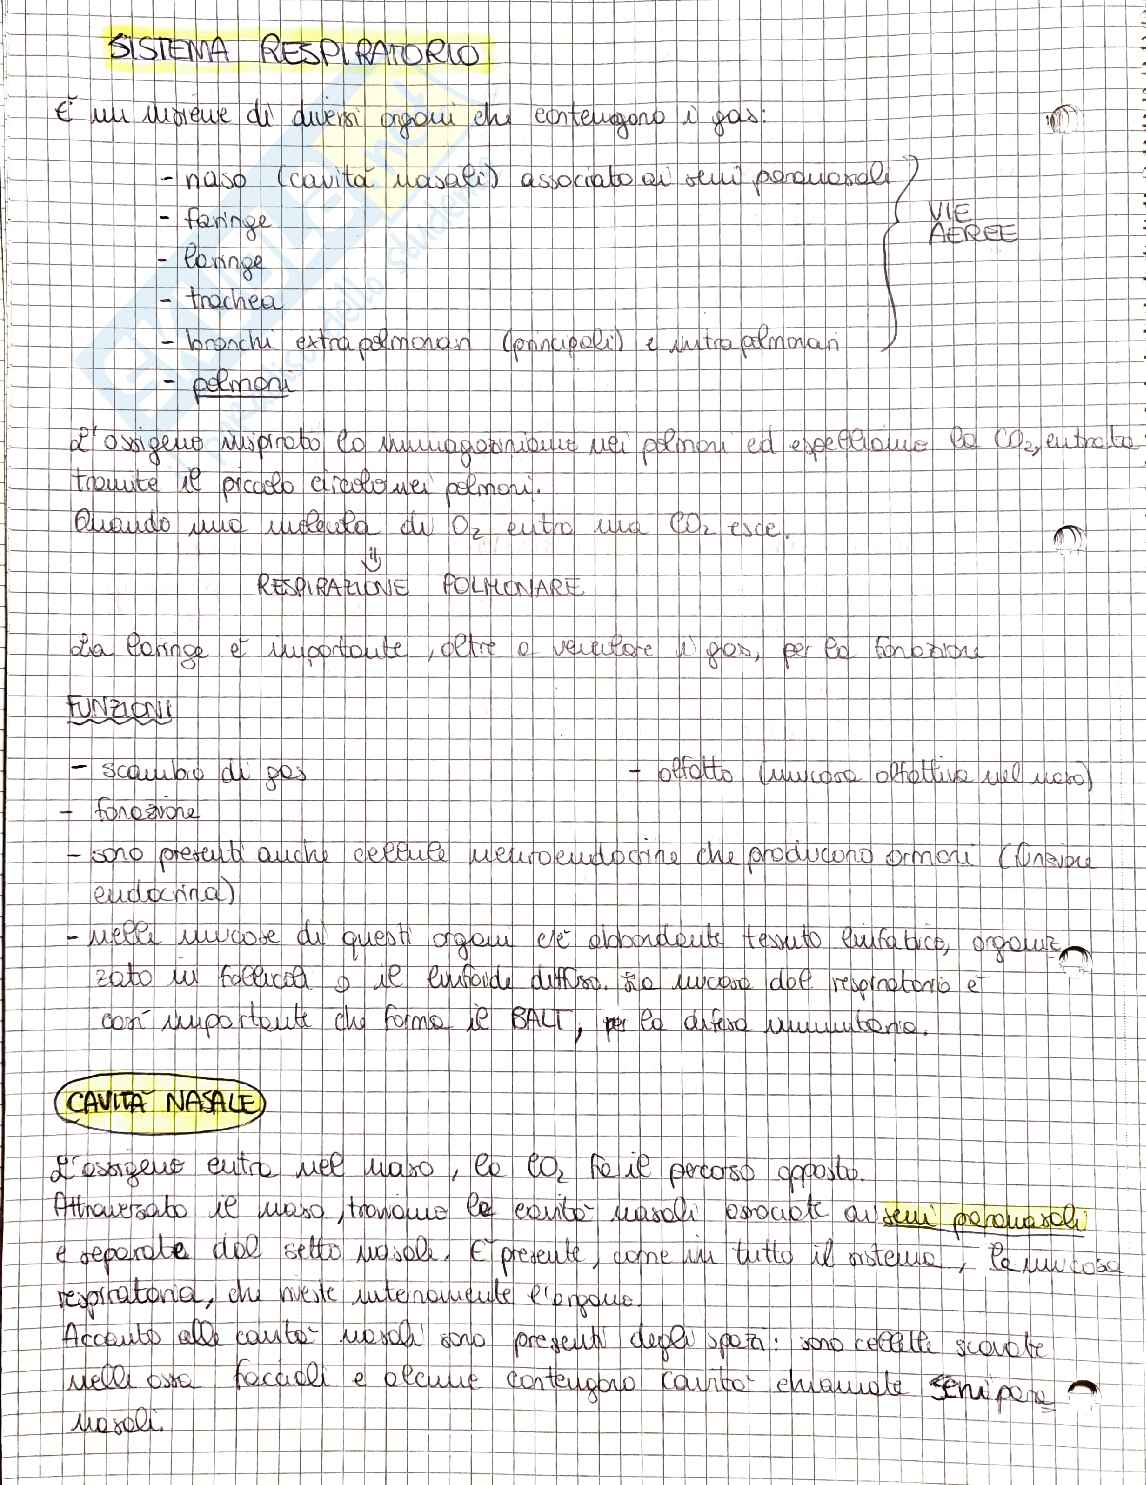 SISTEMA RESPIRATORIO
È un insieme di diversi organi che contengono i gas:
- naso (cavità nasali) associato ai seni paranasali
- faringe
- laringe
- trachea
- bronchi extrapolmonari (principali) e intrapolmonari
- polmoni
VIE
AEREE
L'ossigeno inspirato lo immagazziniamo nei polmoni ed espelliamo la CO2, entrata
tramite il piccolo circolo nei polmoni.
Quando una molecola di O2 entra una CO2 esce.
⇓
RESPIRAZIONE POLMONARE
La laringe è importante, oltre a veicolare i gas, per la fonazione
FUNZIONI
- scambio di gas
- olfatto (mucosa olfattiva nel naso)
- fonazione
- sono presenti anche cellule neuroendocrine che producono ormoni (funzione
endocrina)
- nelle mucose di questi organi c'è abbondante tessuto linfatico, organiz
zato in follicoli o il linfoide diffuso. La mucosa del respiratorio è
così importante che forma il BALT, per la difesa immunitaria.
CAVITÀ NASALE
L'ossigeno entra nel naso, la CO2 fa il percorso opposto.
Attraversato il naso, troviamo le cavità nasali associate ai seni paranasali
e separate dal setto nasale. È presente, come in tutto il sistema, la mucosa
respiratoria, che riveste internamente l'organo.
Accanto alle cavità nasali sono presenti degli spazi: sono cellette scavate
nelle ossa facciali e alcune contengono cavità chiamate seni para
nasali.